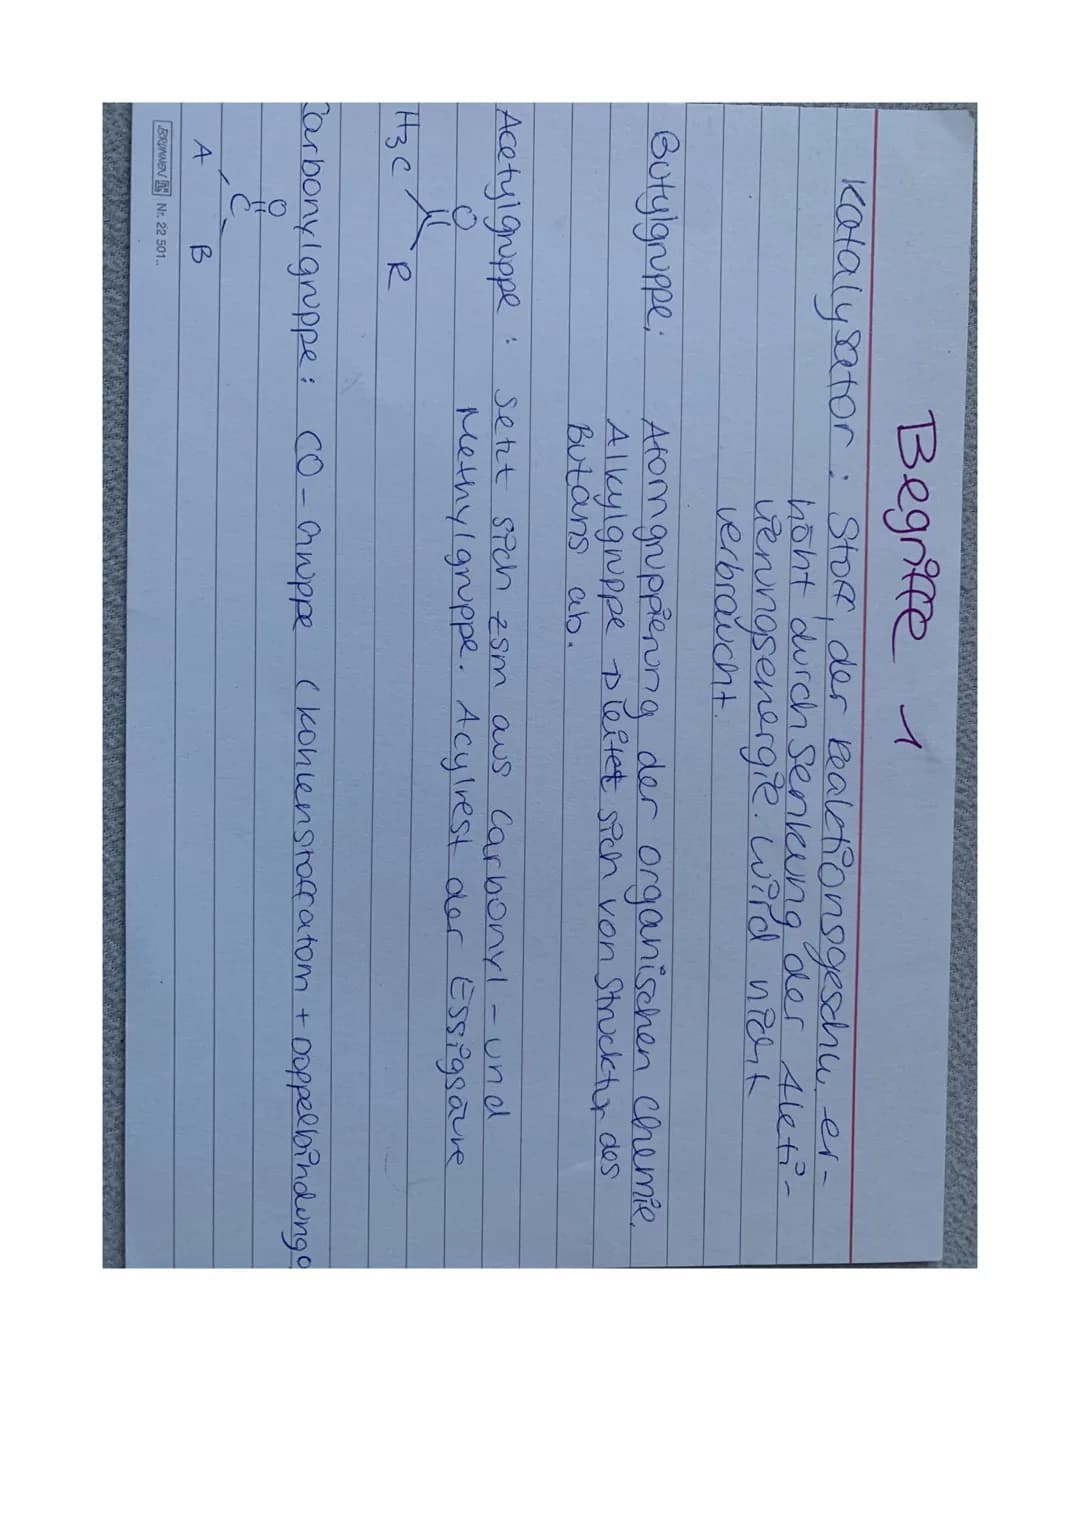 Begriffe 1
Katalysator: Stoff, der Reaktionsgeschw. er-
höht durch Senkung der Akti-
vierungsenergie. Wird nicht
verbraucht.
Butylgruppe: Atomgruppierung der organischen Chemie.
Alkylgruppe → leitet sich von Strucktur des
Butans ab.
Acetylgruppe: Setzt sich zsm aus Carbonyl- und
Methylgruppe. Acylrest der Essigsäure
O
H3C R
Carbonylgruppe: CO-Gruppe (Kohlenstoffatom + DoppelbindungO
O
C
A B
BRUNNEN Nr. 22 501..